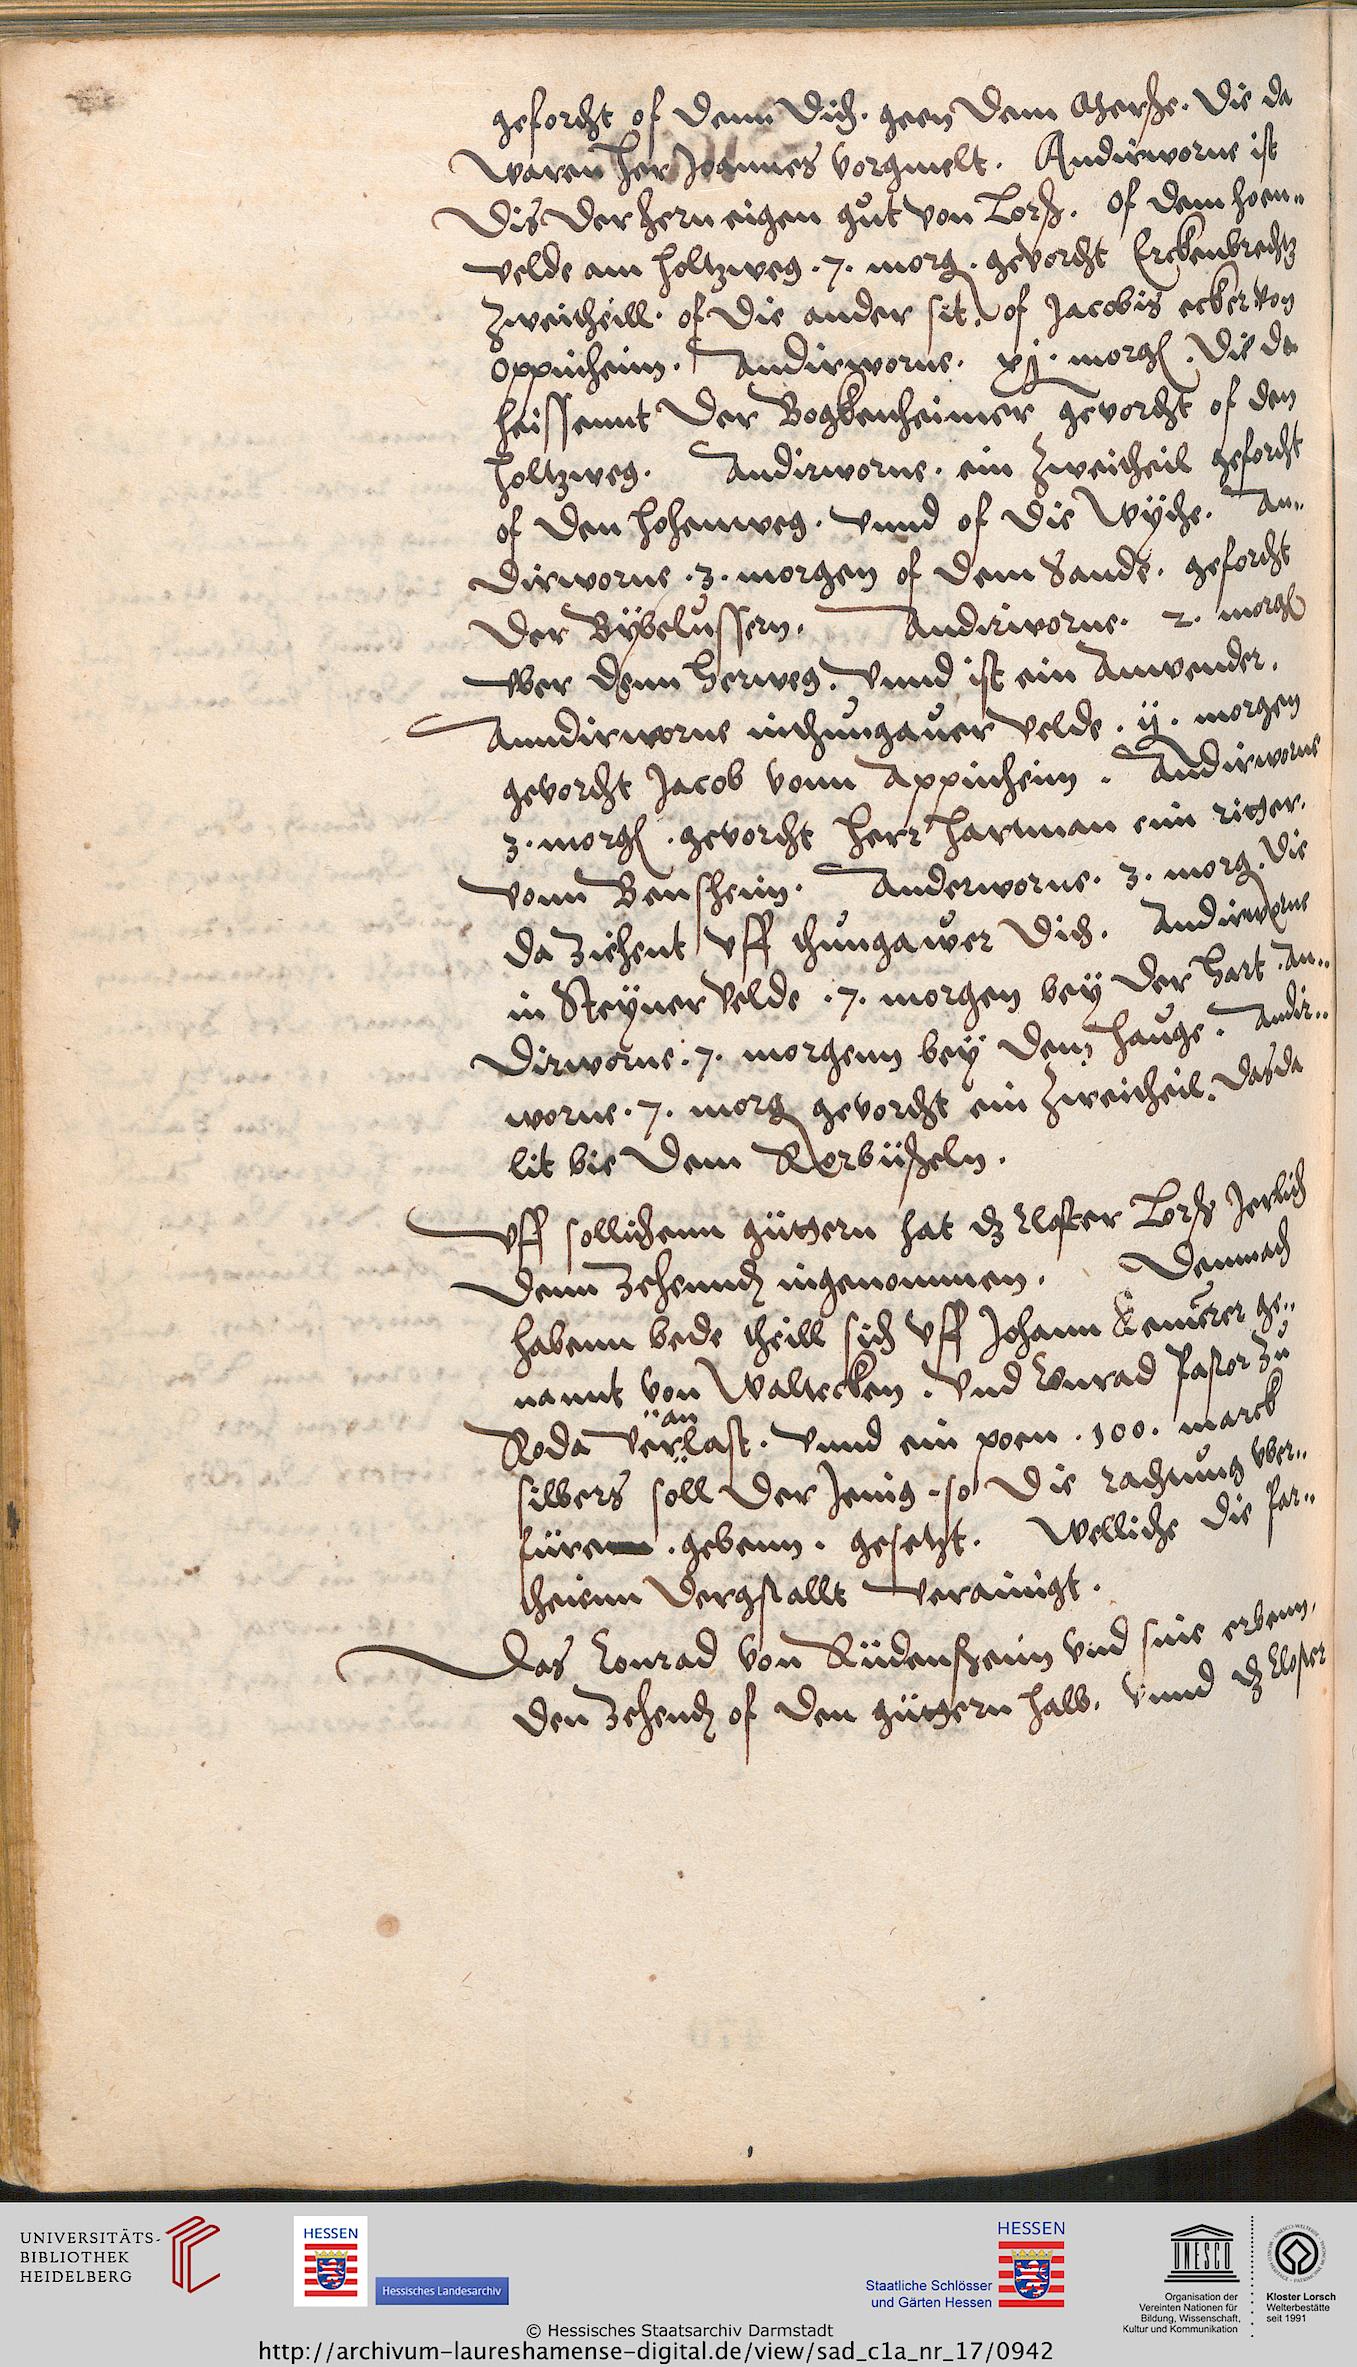 geforcht of denn Dich. geen dem Gerße. die da
waren her Joannes vorgmelt. Andirworne ist
dis der hern eigen gut von Lorß. of dem hoen..
velde am holtzweg .7. morg. gevorcht Erckenbrechtz
zweitheill. of die ander sit. of Jacobis ecker von
Oppinheim. Andirworne. xj. morg. die da
heissennt der Bogkenheimer gevorcht of den
holtzweg. Andirworne. ein zweitheil geforcht
of den hohenweg. vnnd of die Wyche. An..
dirworne .3. morgen of dem Sande. geforcht
der Bybelussern. Andirworne. 2. morg
vber denn herweg. vnnd ist ein Anwender.
Anndirworne inthungauer velde. ij. morgen
gevorcht Jacob vonn Appinheim. Andirworne
3. morg. gevorcht herr hartman ein ritter.
vonn Bensheim. Anderworne. 3. morg. die
da ziehent vff thungawer Dich. Andirworne
in Steyner velde .7. morgen bey der hart. An..
dirworne .7. morgenn bey dem hauge. Andir..
worne .7. morg gevorcht ein zweitheil. das da
lit bie dem Rorbüßeln.
Vff sollichenn güttern hat dz Closter Lorß Jerlich
denn zehennd ingenommen. Demnach
habenn bede theill sich vff Johann Kemerer ge..
nannt von Waltecken. vnd Conrad Pastor zu
Roda veranlast. vnnd ein poen .100. marck
silbers soll der Jenig so die rachtung vber..
füre .gebenn. gesetzt. Welliche die par..
theienn dergstallt verainigt.
Das Conrad von Rüdenßheim vnd sine erbenn,
den zehend of den güttern halb. vnnd dz Closter
UNIVERSITÄTS-
BIBLIOTHEK
HEIDELBERG
HESSEN
Hessisches Landesarchiv
HESSEN
Staatliche Schlösser
und Gärten Hessen
UNESCO
Organisation der
Vereinten Nationen für
Bildung, Wissenschaft,
Kultur und Kommunikation
Kloster Lorsch
Welterbestätte
seit 1991
© Hessisches Staatsarchiv Darmstadt
http://archivum-laureshamense-digital.de/view/sad_c1a_nr_17/0942